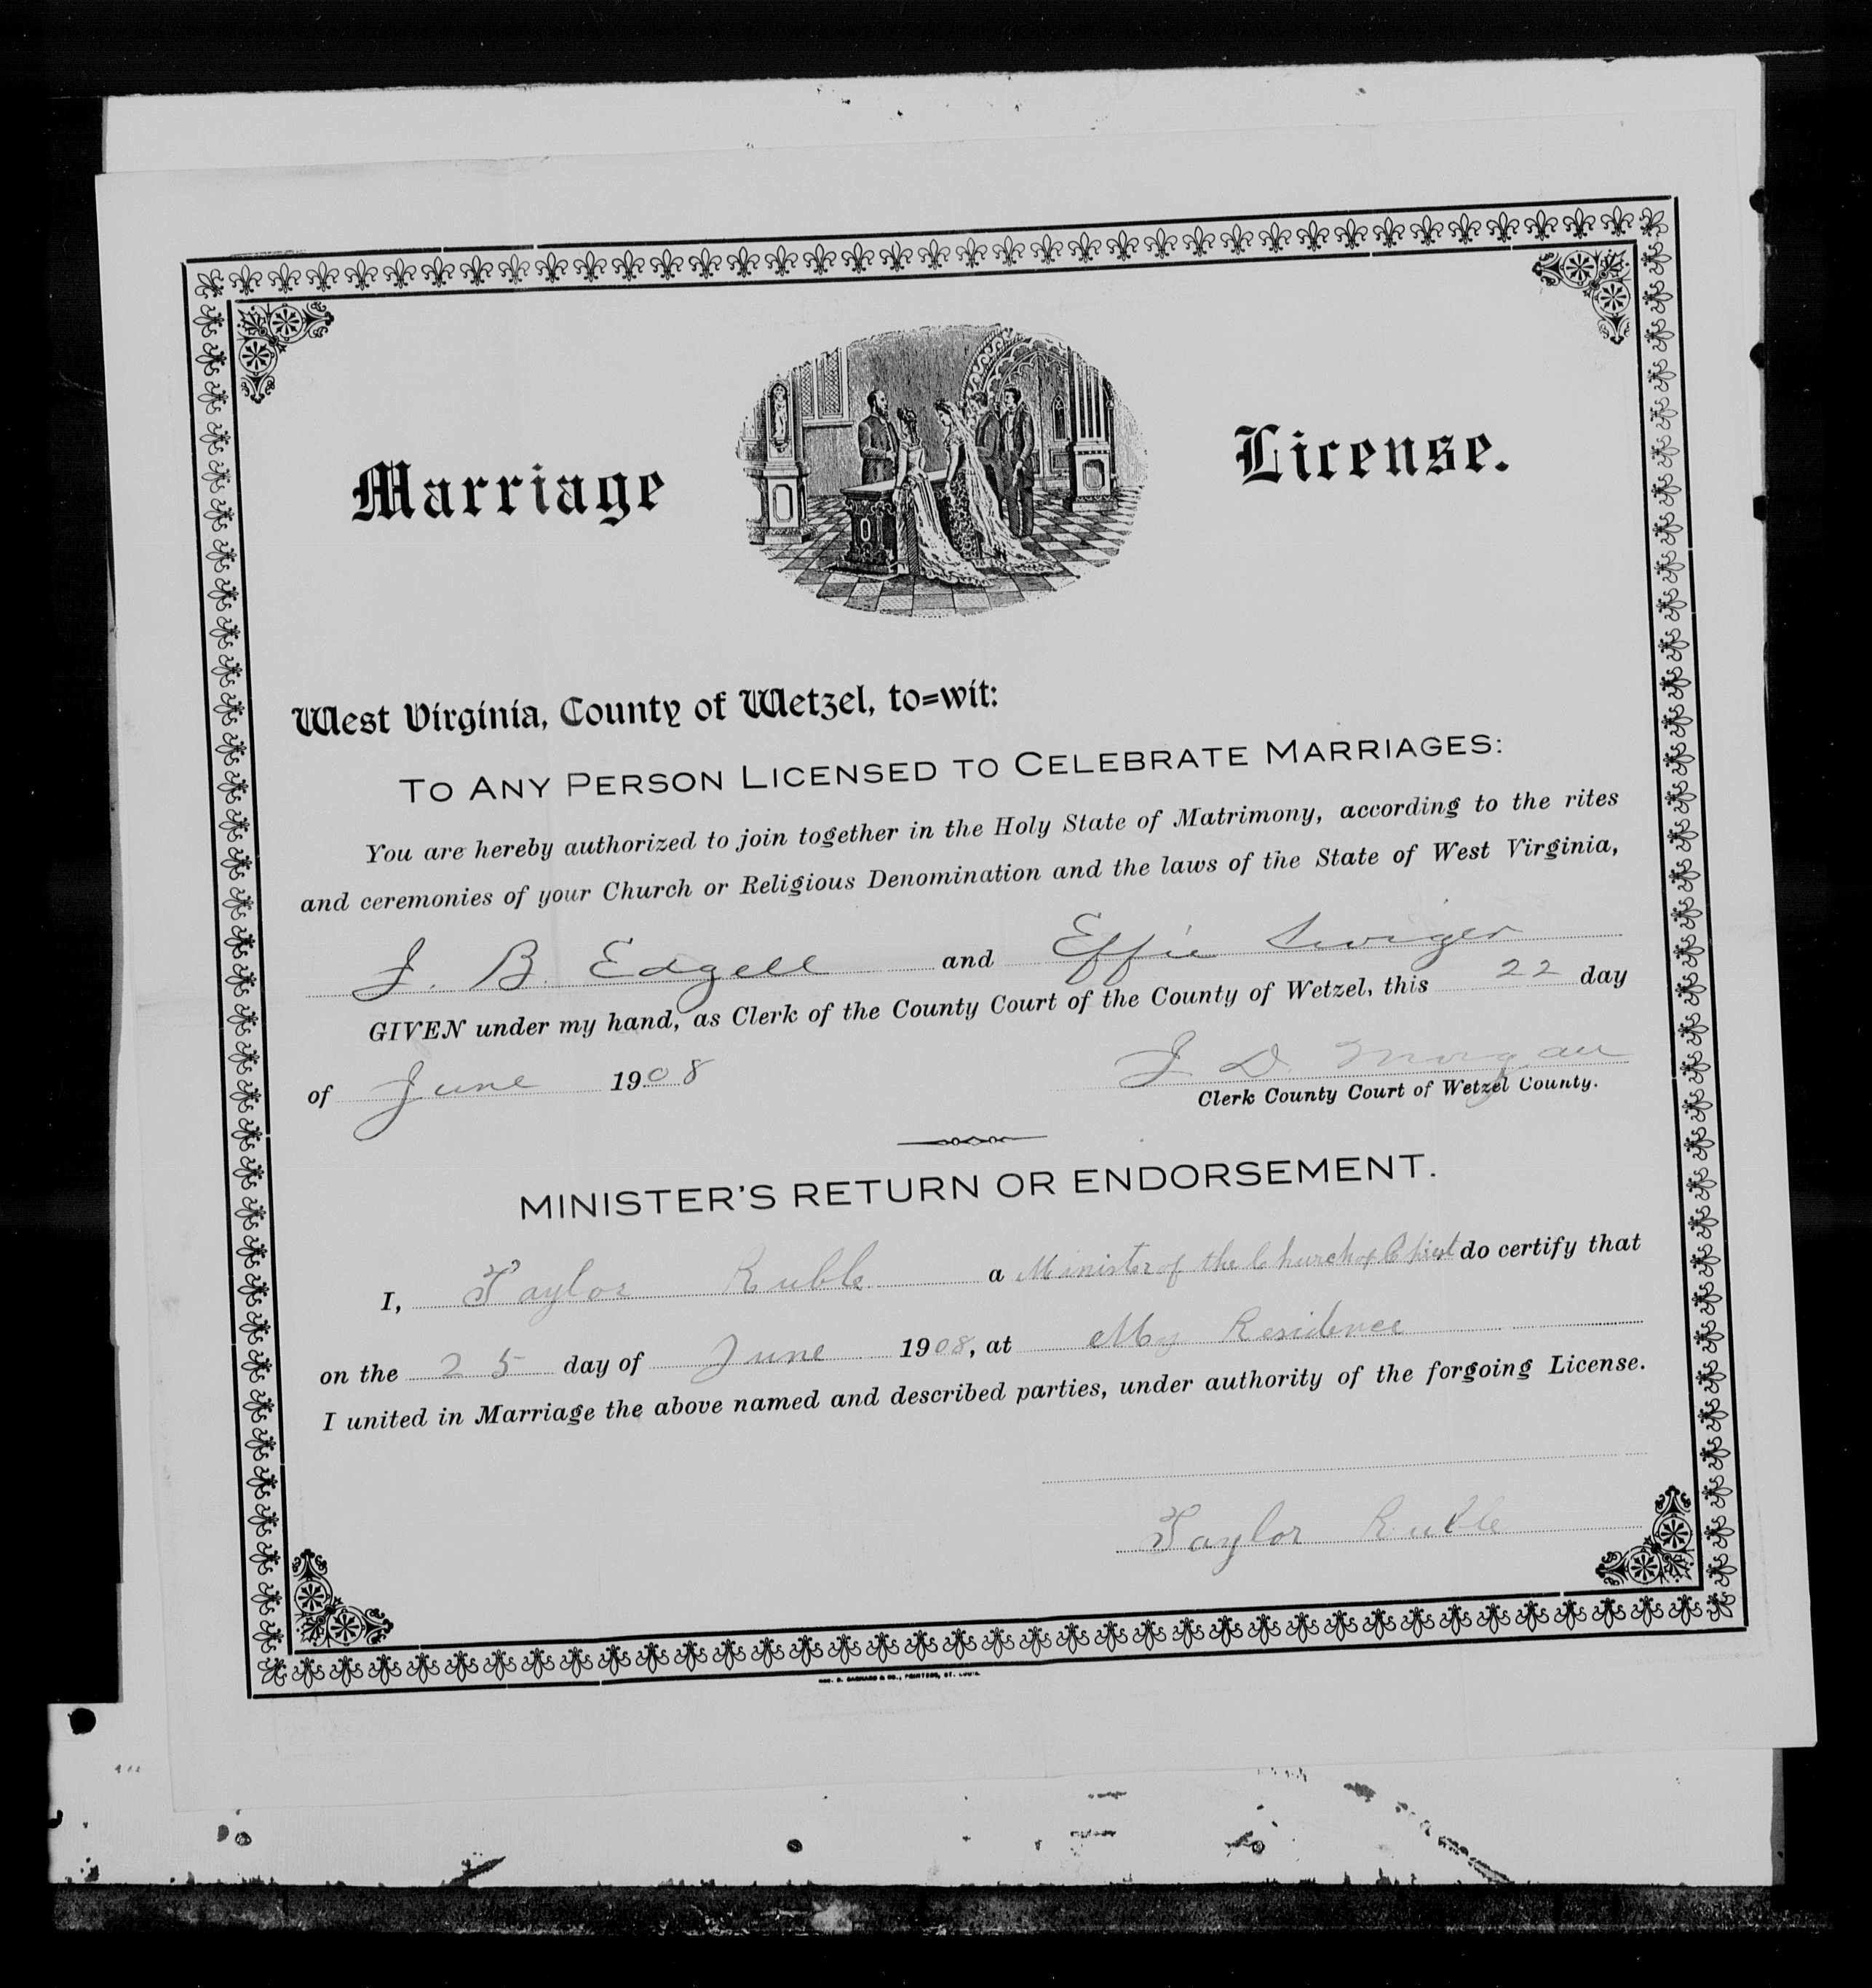 Marriage License.
West Virginia, County of Wetzel, to=wit:
TO ANY PERSON LICENSED TO CELEBRATE MARRIAGES:
You are hereby authorized to join together in the Holy State of Matrimony, according to the rites
and ceremonies of your Church or Religious Denomination and the laws of the State of West Virginia,
J. B. Edgell and Effie Swiger
GIVEN under my hand, as Clerk of the County Court of the County of Wetzel, this 22 day
of June 1908 J D Morgan
Clerk County Court of Wetzel County.
MINISTER'S RETURN OR ENDORSEMENT.
I, Taylor Ruble a Minister of the Church of Christ do certify that
on the 25 day of June 1908, at My Residence
I united in Marriage the above named and described parties, under authority of the forgoing License.
Taylor Ruble